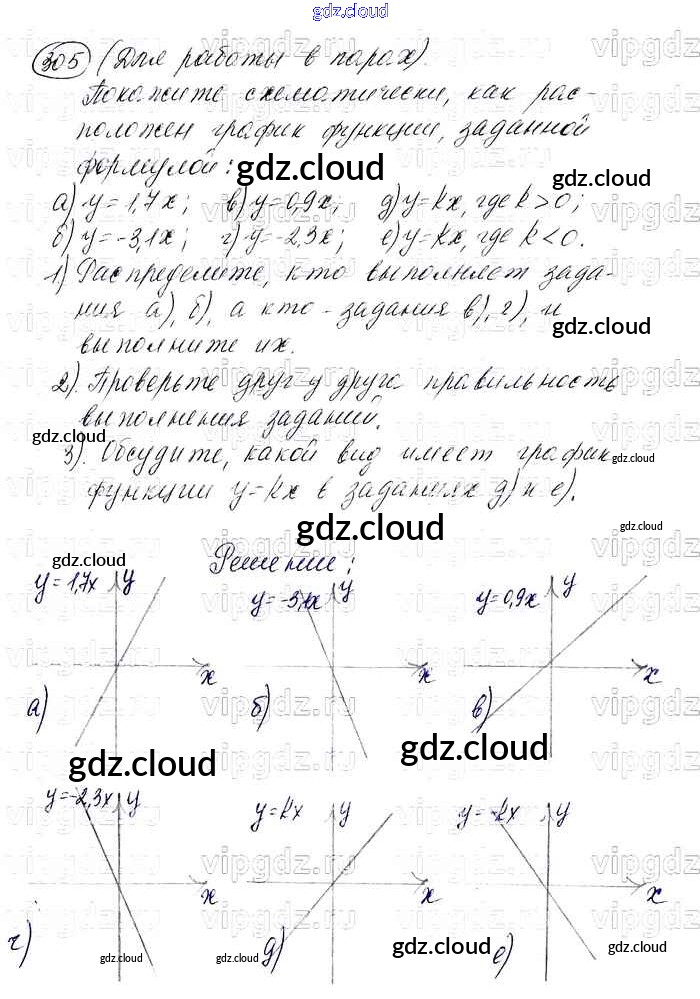 gdz.cloud
305 (Для работы в парах).
Покажите схематически, как рас-
положен график функции, заданной
формулой:
gdz.cloud
gdz.cloud
а) y=1,7x; в) y=0,9x; д) y=kx, где k>0;
б) y=-3,1x; г) y=-2,3x; е) y=kx, где k<0.
1) Распределите, кто выполняет зада-
ния а), б), а кто - задания в), г), и
gdz.cloud
выполните их.
2). Проверьте друг у друга правильность
выполнения заданий.
gdz.cloud
3). Обсудите, какой вид имеет график
gdz.cloud
функции y=kx в заданиях д) и е).
gdz.cloud
gdz.cloud
Решение:
gdz.cloud
y=1,7x y
x
а)
y=-3,1x y
x
б)
y=0,9x y
x
в)
gdz.cloud
gdz.cloud
y=-2,3x y
x
г)
y=kx y
x
д)
y=-kx y
x
е)
gdz.cloud
gdz.cloud
gdz.cloud
gdz.cloud
vipgdz.ru